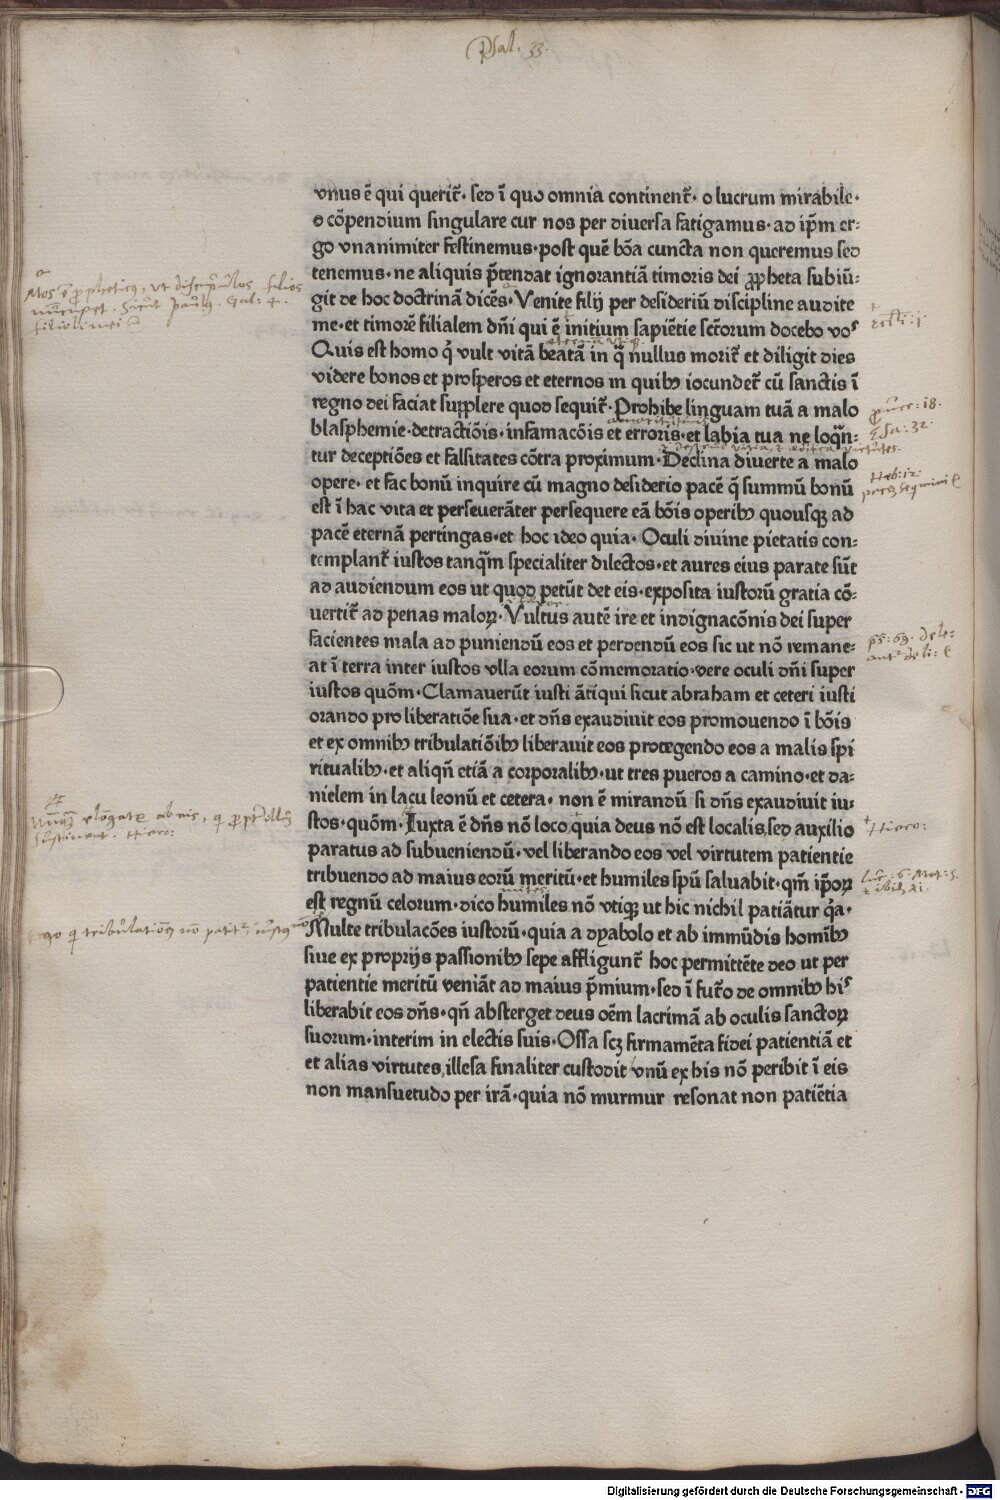 Psal. 33.
vnus ē qui querit᷑. sed ī quo omnia continent᷑. o lucrum mirabile.
o cōpendium singulare cur nos per diuersa fatigamus. ad ip̄m er=
go vnanimiter festinemus. post quē bōa cuncta non queremus sed
tenemus. ne aliquis p̄tendat ignorantiā timoris dei ꝓpheta subiū=
git de hoc doctrinā dicēs. Venite filij per desideriū discipline audite
me. et timorē filialem dn̄i qui ē initium sapiētie sct̄orum docebo vos
Quis est homo q̇ vult vitā beatā in q̄ nullus morit᷑ et diligit dies
videre bonos et prosperos et eternos in quibꝫ iocundet᷑ cū sanctis ī
regno dei faciat supplere quod sequit᷑. Prohibe linguam tuā a malo
blasphemie. detractiōis. infamacōis et erroris. et labia tua ne loqn̄=
tur deceptiōes et falsitates cōtra proximum. Declina diuerte a malo
opere. et fac bonū inquire cū magno desiderio pacē q̄ summū bonū
est ī hac vita et perseuerāter persequere eā bōis operibꝫ quousqꝫ ad
pacē eternā pertingas. et hoc ideo quia. Oculi diuine pietatis con=
templant᷑ iustos tanq̄m specialiter dilectos. et aures eius parate sūt
ad audiendum eos ut quod petūt det eis. exposita iustorū gratia cō=
uertit᷑ ad penas maloꝝ. Vultus autē ire et indignacōnis dei super
facientes mala ad puniendū eos et perdendū eos sic ut nō remane=
at ī terra inter iustos vlla eorum cōmemoratio. vere oculi dn̄i super
iustos quōm. Clamauerūt iusti ātiqui sicut abraham et ceteri iusti
orando pro liberatiōe sua. et dn̄s exaudiuit eos promouendo ī bōis
et ex omnibꝫ tribulatiōibꝫ liberauit eos protegendo eos a malis spi
ritualibꝫ. et aliqn̄ etiā a corporalibꝫ. ut tres pueros a camino. et da=
nielem in lacu leonū et cetera. non ē mirandū si dn̄s exaudiuit iu=
stos. quōm. Iuxta ē dn̄s nō loco quia deus nō est localis sed auxilio
paratus ad subueniendū. vel liberando eos vel virtutem patientie
tribuendo ad maius eorū meritū. et humiles spū saluabit. qm̄ ip̄oꝝ
est regnū celorum. dico humiles nō vtiqꝫ ut hic nichil patiātur q̇a.
Multe tribulacōes iustorū. quia a dyabolo et ab immūdis homībꝫ
siue ex proprijs passionibꝫ sepe affligunt᷑ hoc permittēte deo ut per
patientie meritū veniāt ad maius p̄mium. sed ī fut᷑o de omnibꝫ his
liberabit eos dn̄s. qn̄ absterget deus oēm lacrimā ab oculis sanctoꝝ
suorum. interim in electis suis. Ossa scꝫ firmamēta fidei patientiā et
et alias virtutes illesa finaliter custodit vnū ex his nō peribit ī eis
non mansuetudo per irā. quia nō murmur resonat non patiētia
Eccli: 1.
prouer: 18.
Esa: 32.
Heb: 12.
ps: 69.
Hiero:
Digitalisierung gefördert durch die Deutsche Forschungsgemeinschaft - DFG